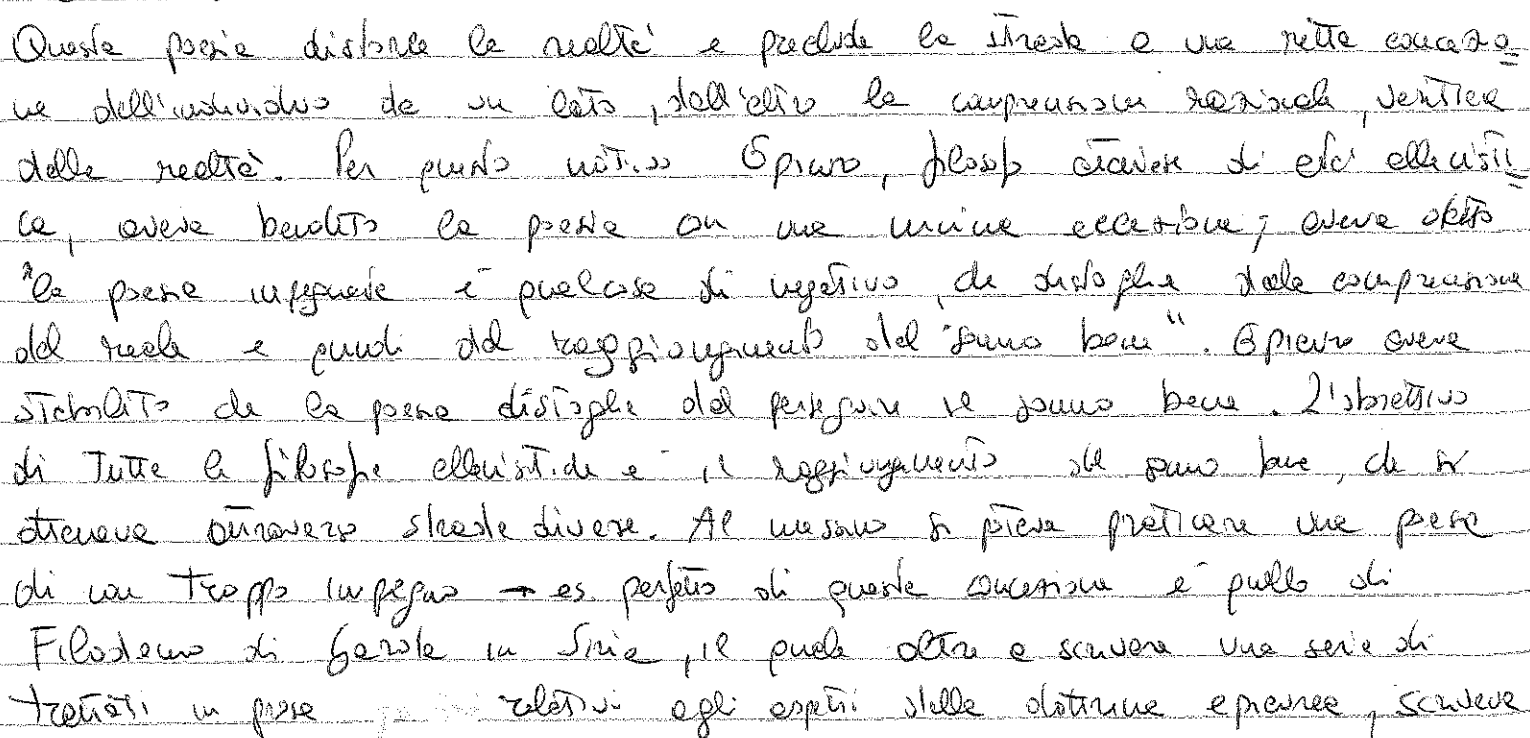 Questa poesia distorce la realtà e preclude la strada a una retta concezio=
ne dell'individuo da un lato, dall'altro la comprensione razionale, veritiera
della realtà. Per questo motivo Epicuro, filosofo di età ellenisti=
ca, aveva bandito la poesia con una minima eccezione; aveva detto
"la poesia impegnata è qualcosa di negativo, che distoglie dalla comprensione
del reale e quindi dal raggiungimento del sommo bene". Epicuro aveva
stabilito che la poesia distoglie dal perseguire il sommo bene. L'obiettivo
di tutte le filosofie ellenistiche è il raggiungimento del sommo bene, che si
otteneva attraverso strade diverse. Al massimo si poteva praticare una poesia
di non troppo impegno → es perfetto di questa concezione è quello di
Filodemo di Gadara in Siria, il quale oltre a scrivere una serie di
trattati in prosa relativi agli aspetti della dottrina epicurea, scriveva